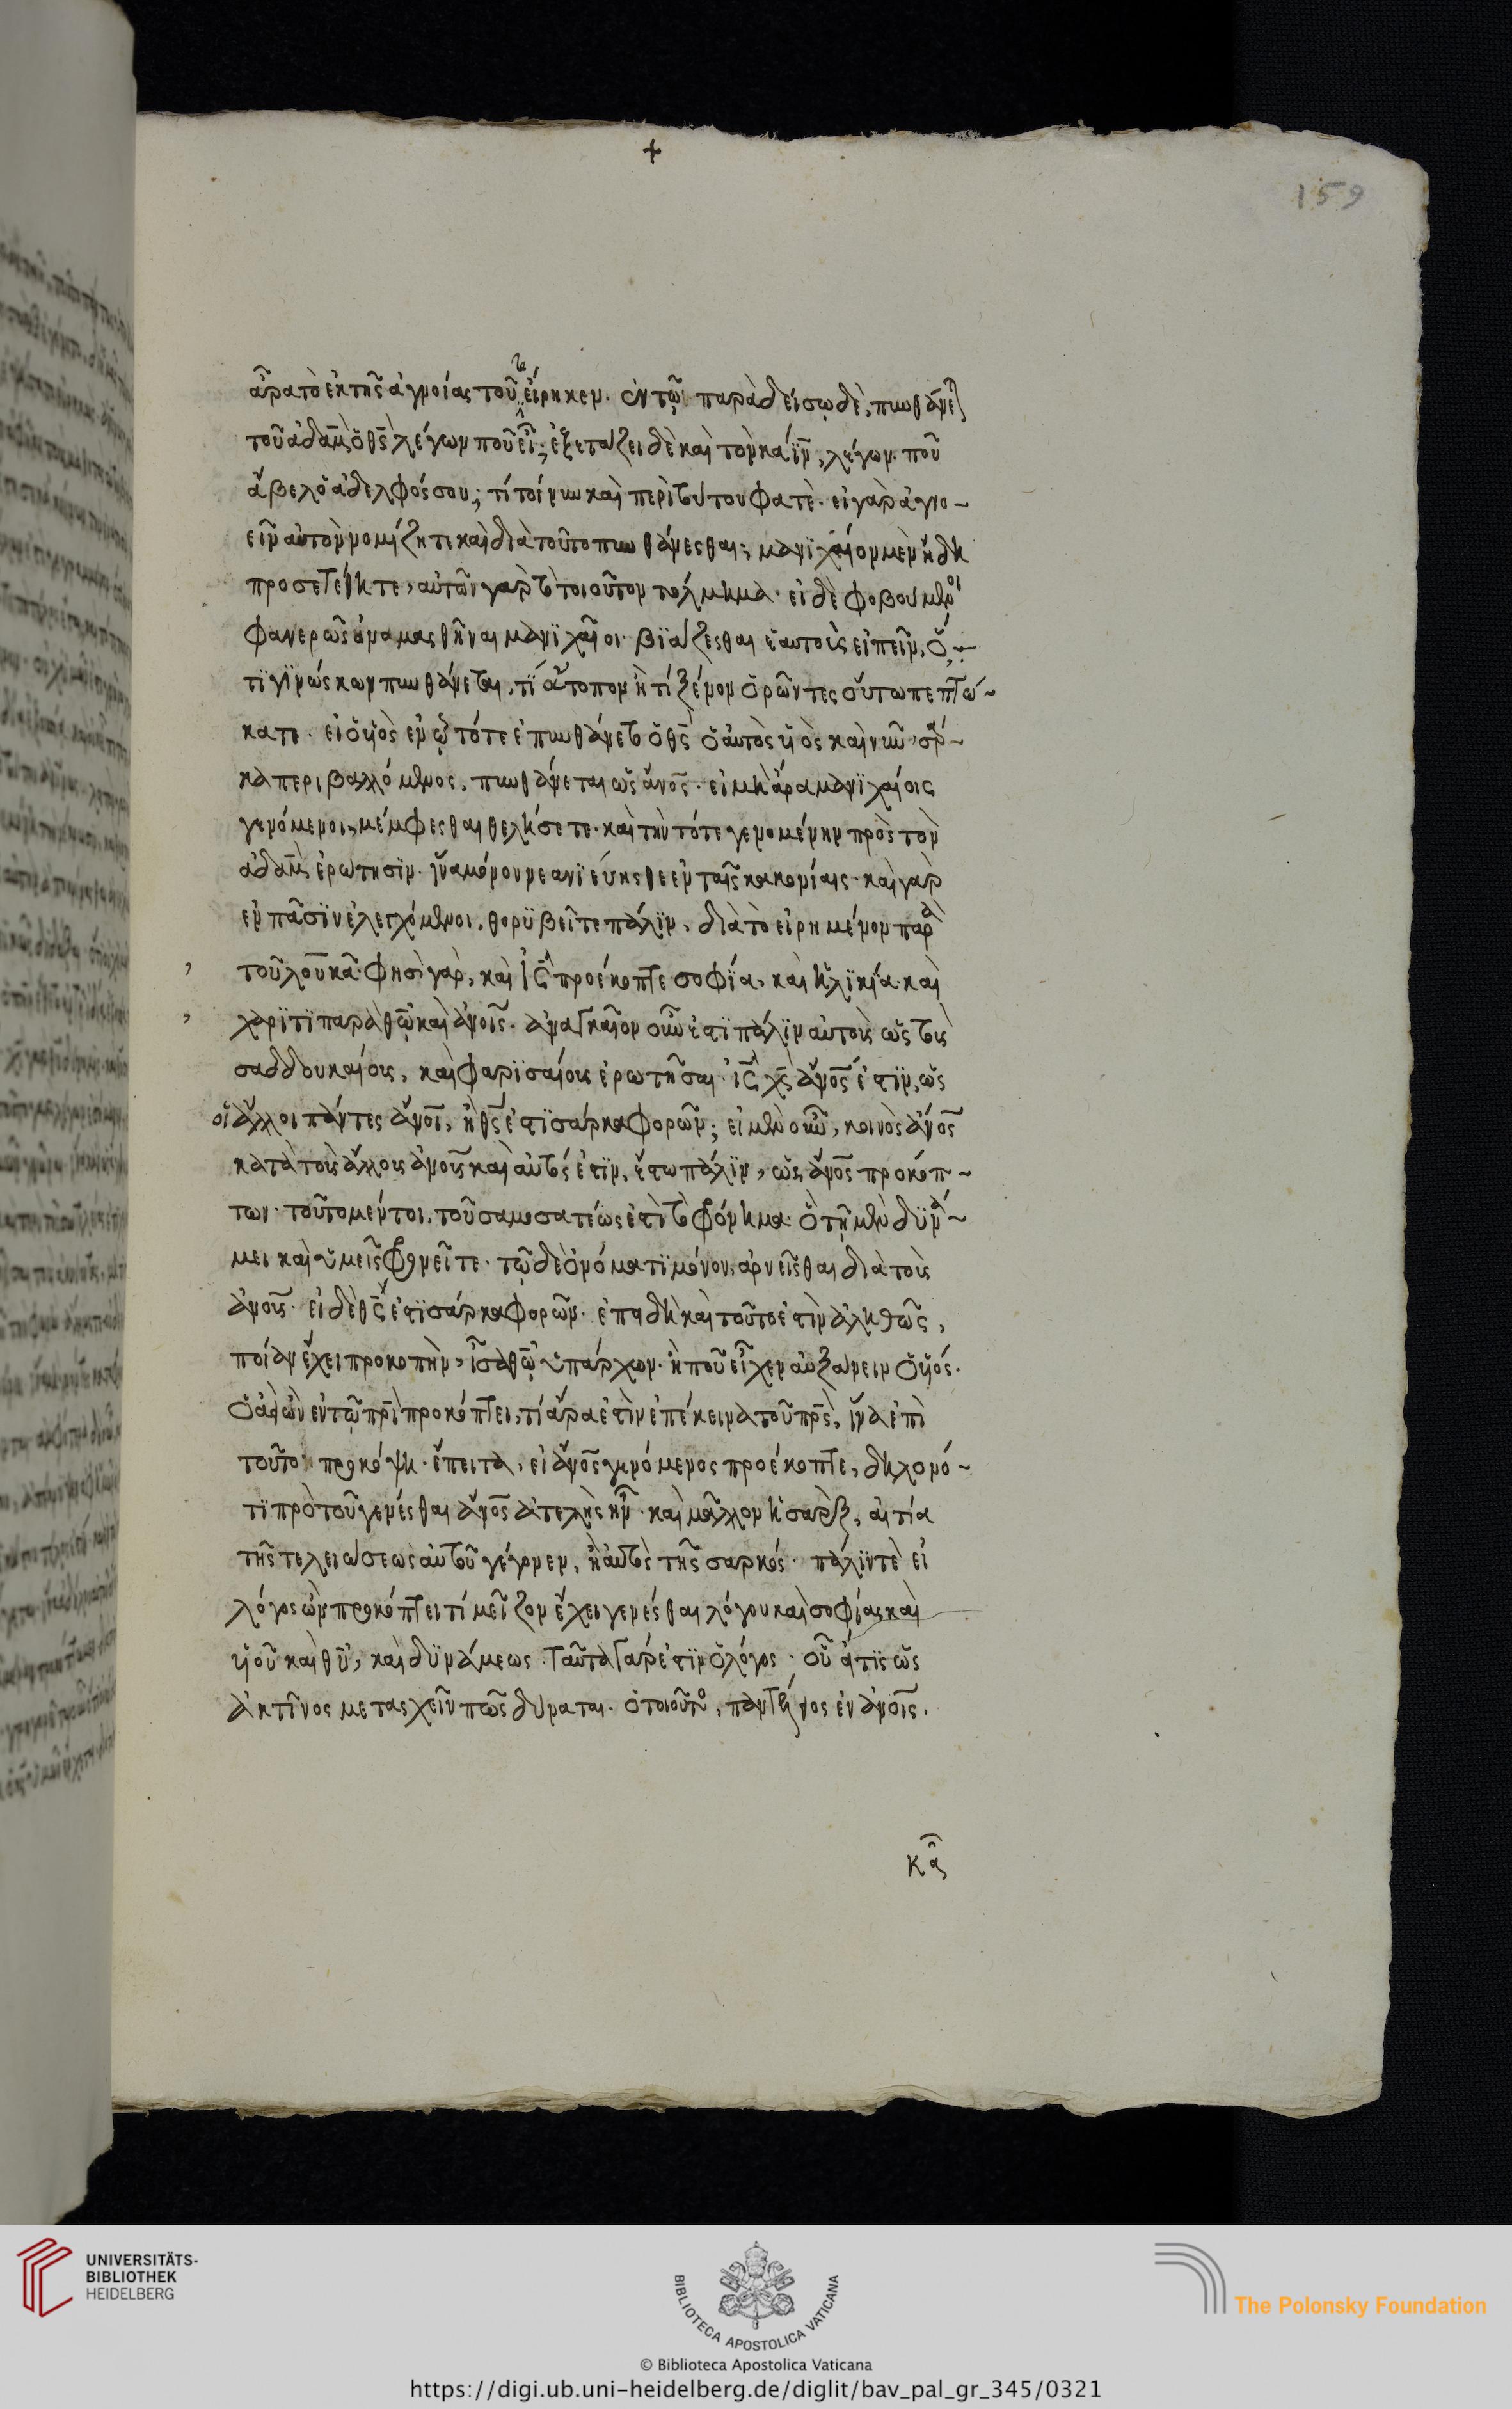 +
159
ἄρα τὸ ἐκ τῆς ἀγνοίας τοῦτο εἴρηκεν. ἐν τῷ παραδείσῳ δὲ, πυνθάνεται
τοῦ ἀδὰμ ὁ θς λέγων ποῦ εἶ; ἐξετάζει δὲ καὶ τὸν κάϊν, λέγων ποῦ
ἄβελ ὁ ἀδελφός σου; τί τοίνυν καὶ περὶ τούτου φατὲ. εἰ γὰρ ἀγνο-
εῖν αὐτὸν νομίζητε καὶ διὰ τοῦτο πυνθάνεσθαι, μανϊχαίον μὲν ἤδη
προσετέθητε, αὐτῶν γὰρ τὸ τοιοῦτον τόλμημα. εἰ δὲ φοβούμενοι
φανερῶς ὀνομασθῆναι μανϊχαῖοι. βϊάζεσθαι ἑαυτοὺς εἰπεῖν, ὅ-
τϊ γϊνώσκων πυνθάνεται, τϊ ἄτοπον ἢ τί ξένον ὁρῶντες οὕτω πεπτώ-
κατε. εἰ ὁ υἱὸς ἐν ᾧ τότε ἐπυνθάνετο ὁ θς ὁ αὐτὸς υἱὸς καὶ νῦν σάρ-
κα περιβαλλόμενος, πυνθάνεται ὡς ἄνος. εἰ μὴ ἄρα μανϊχαίοις
γενόμενοι, μέμφεσθαι θελήσετε. καὶ τὴν τότε γενομένην πρὸς τὸν
ἀδὰμ ἐρώτησϊν. ἵνα μόνον νεανϊεύησθε ἐν ταῖς κακονίαις. καὶ γὰρ
ἐν πᾶσϊν ἐλεγχόμενοι, θορϋβεῖτε πάλϊν, διὰ τὸ εἰρημένον παρὰ
τοῦ λουκᾶ. φησὶ γὰρ, καὶ ις προέκοπτε σοφΐα, καὶ ἡλϊκία. καὶ
χάρϊτϊ παρὰ θῷ καὶ ἀνοις. ἀναγκαῖον οὖν ἐστϊ πάλϊν αὐτοὺς ὡς τοὺς
σαδδουκαίους, καὶ φαρϊσαίους ἐρωτῆσαι. ις χς ἄνος ἐστϊν, ὡς
οἱ ἄλλοι πάντες ἄνοι, ἢ θς ἐστϊ σάρκα φορῶν; εἰ μὲν οὖν, κοινὸς ἄνος
κατὰ τοὺς ἄλλους ἀνους καὶ αὐτός ἐστϊν, ἔστω πάλϊν, ὡς ἄνος προκόπ-
των. τοῦτο μέντοι, τοῦ σαμοσατέως ἐστὶ τὸ φρόνημα. ὃ τῇ μὲν δϋνά-
μει καὶ ὑμεῖς φρονεῖτε. τῷ δὲ ὀνόματϊ μόνον, ἀρνεῖσθαι διὰ τοὺς
ἀνους. εἰ δὲ θς ἐστϊ σάρκα φορῶν. ἐπειδὴ καὶ τοῦτο ἐστὶν ἀληθῶς,
ποίαν ἔχει προκοπὴν, ἴσα θῷ ὑπάρχων. ἢ ποῦ εἶχεν αὐξάνειν ὁ υἱός.
ὁ ἀεὶ ὢν ἐν τῷ πρὶ προκόπτει, τί ἄρα ἐστὶν ἐπέκεινα τοῦ πρς, ἵνα ἐπὶ
τοῦτο προκόψη. ἔπειτα, εἰ ἄνος γενόμενος προέκοπτε, δηλονό-
τϊ πρὸ τοῦ γενέσθαι ἄνος ἀτελὴς ἦν. καὶ μᾶλλον ἡ σὰρξ, αἰτία
τῆς τελειώσεως αὐτοῦ γέγονεν, ἢ αὐτὸς τῆς σαρκός. πάλϊν τὲ εἰ
λόγος ὢν προκόπτει τί μεῖζον ἔχει γενέσθαι λόγου καὶ σοφίας καὶ
υἱοῦ καὶ θῦ, καὶ δϋνάμεως. ταῦτα γάρ ἐστϊν ὁ λόγος. οὗ ἄν τϊς ὡς
ἀκτῖνος μετασχεῖν πῶς δύναται. ὁ τοιοῦτος, παντέλειος ἐν ἀνοις.
κα
UNIVERSITÄTS-
BIBLIOTHEK
HEIDELBERG
BIBLIOTECA APOSTOLICA VATICANA
The Polonsky Foundation
© Biblioteca Apostolica Vaticana
https://digi.ub.uni-heidelberg.de/diglit/bav_pal_gr_345/0321